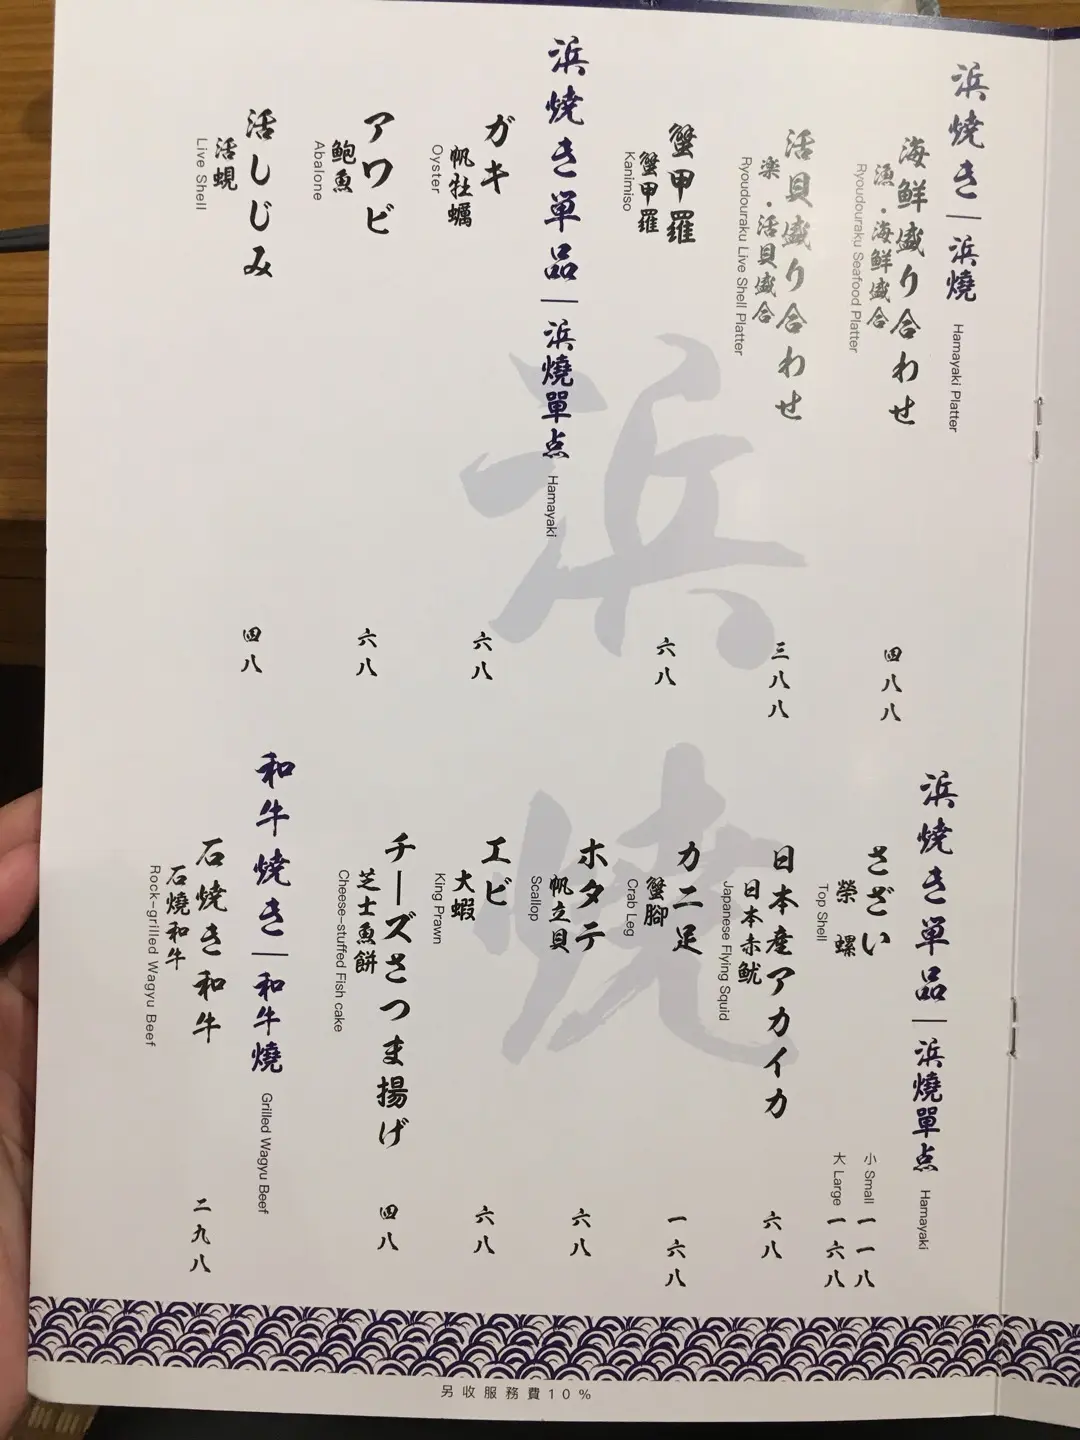 浜焼き｜浜燒 Hamayaki Platter
海鮮盛り合わせ 四八八
漁・海鮮盛合
Ryoudouraku Seafood Platter
活貝盛り合わせ 三八八
楽・活貝盛合
Ryoudouraku Live Shell Platter
蟹甲羅 六八
蟹甲羅
Kanimiso
浜焼き単品｜浜燒單点 Hamayaki
ガキ 六八
帆牡蠣
Oyster
アワビ 六八
鮑魚
Abalone
活しじみ 四八
活蜆
Live Shell
浜焼き単品｜浜燒單点 Hamayaki
さざい 小 Small 一一八
榮螺 大 Large 一六八
Top Shell
日本産アカイカ 六八
日本赤魷
Japanese Flying Squid
カニ足 一六八
蟹腳
Crab Leg
ホタテ 六八
帆立貝
Scallop
エビ 六八
大蝦
King Prawn
チーズさつま揚げ 四八
芝士魚餅
Cheese-stuffed Fish cake
和牛焼き｜和牛燒 Grilled Wagyu Beef
石焼き和牛 二九八
石燒和牛
Rock-grilled Wagyu Beef
浜燒
另收服務費10%